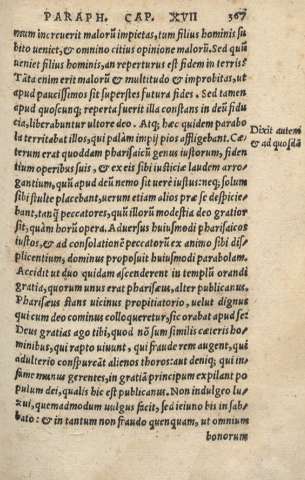 PARAPH. CAP. XVII 367
mum increuerit malorũ impietas, tum filius hominis su
bito ueniet, & omnino citius opinione malorũ. Sed quũ
ueniet filius hominis, an reperturus est fidem in terris?
Tãta enim erit malorũ & multitudo & improbitas, ut
apud paucissimos sit superstes futura fides. Sed tamen
apud quoscunq; reperta fuerit illa constans in deũ fidu
cia, liberabuntur ultore deo. Atq; hæc quidem parabo
la territabat illos, qui palàm impij pios affligebant. Cæ
terum erat quoddam pharisaicũ genus iustorum, fiden
tium operibus suis, & ex eis sibi iusticiæ laudem arro-
gantium, quũ apud deũ nemo sit uerè iustus: neq; solum
sibi stulte placebant, uerum etiam alios præ se despicie-
bant, tanq̃ peccatores, quũ illorũ modestia deo gratior
sit, quàm horũ opera. Aduersus huiusmodi pharisaicos
iustos, & ad consolationẽ peccatorũ ex animo sibi dis-
plicentium, dominus proposuit huiusmodi parabolam.
Accidit ut duo quidam ascenderent in templũ orandi
gratia, quorum unus erat pharisæus, alter publicanus.
Pharisæus stans uicinus propitiatorio, uelut dignus
qui cum deo cominus colloqueretur, sic orabat apud se:
Deus gratias ago tibi, quod nõ sum similis cæteris ho-
minibus, qui rapto uiuunt, qui fraude rem augent, qui
adulterio conspurcãt alienos thoros: aut deniq; qui in-
fame munus gerentes, in gratiã principum expilant po
pulum dei, qualis hic est publicanus. Non indulgeo lu-
xui, quemadmodum uulgus facit, sed ieiuno bis in sab-
bato: & in tantum non fraudo quenquam, ut omnium
bonorum
Dixit autem
& ad quosdã